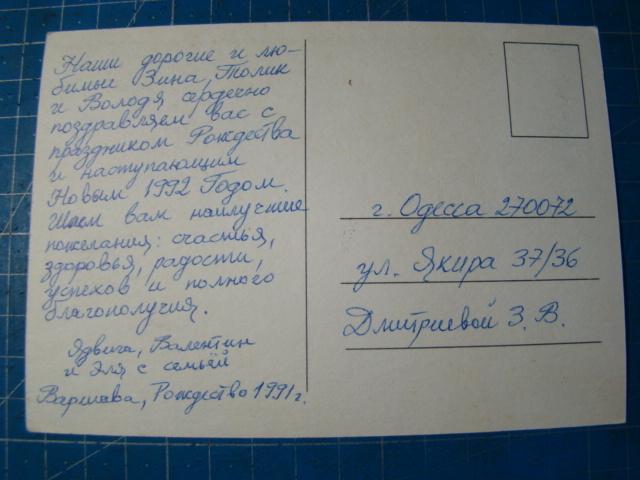 Наши дорогие и лю-
бимые Зина, Толик
и Володя, сердечно
поздравляем вас с
праздником Рождества
и наступающим
Новым 1992 Годом.
Шлем вам наилучшие
пожелания: счастья,
здоровья, радости,
успехов и полного
благополучия.
Ядвига, Валентин
и Эля с семьёй
Варшава, Рождество 1991г.
г. Одесса 270072
ул. Якира 37/36
Дмитриевой З. В.